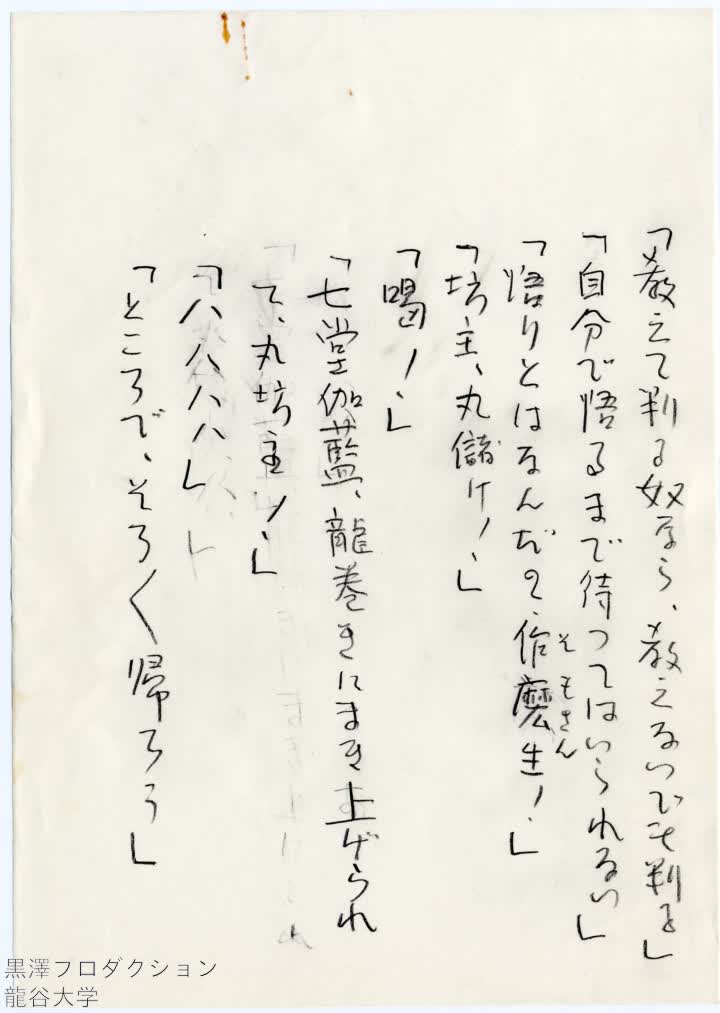 「教えて判る奴なら、教えないでも判る」
「自分で悟るまで待つてはいられない」
「悟りとはなんだ?作麼生!」
そもさん
「坊主、丸儲け!」
「喝!」
「七堂伽藍、龍巻きにまき上げられ
て、丸坊主!」
「ハハハハ」
「ところで、そろ〱帰ろう」
黒澤プロダクション
龍谷大学